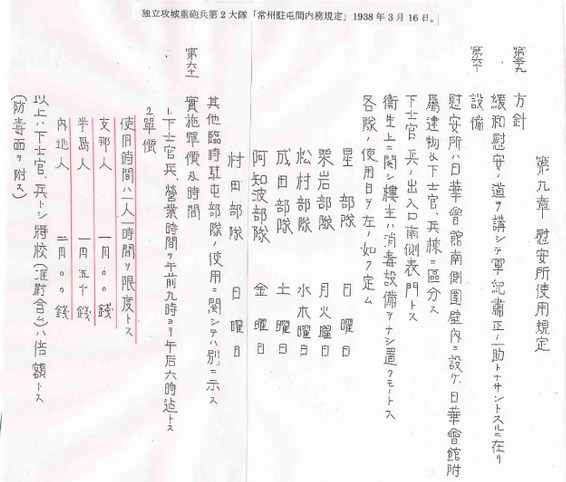 独立攻城重砲兵第2大隊「常州駐屯間内務規定」1938年3月16日。
第九章 慰安所使用規定
第五九 方針
緩和慰安ノ道ヲ講シテ軍紀粛正ノ一助トナサントスルニ在リ
第六十 設備
慰安所ハ日華會館南側圍壁内ニ設ケ、日華會館附
属建物及下士官、兵棟ニ區分ス
下士官、兵ノ出入口南側表門トス
衛生上ニ関シ樓主ハ消毒設備ヲナシ置クモノトス
各隊ノ使用日ヲ左ノ如ク定ム
星部隊 日曜日
栗岩部隊 月火曜日
松村部隊 水木曜日
成田部隊 土曜日
阿知波部隊 金曜日
村田部隊 日曜日
其他臨時駐屯部隊ノ使用ニ関シテハ別ニ示ス
第六一 實施單價及時間
1.下士官兵、營業時間ヲ午前九時ヨリ午后六時迠トス
2.單價
使用時間ハ一人一時間ヲ限度トス
支那人 一円〇〇銭
半島人 一円五十銭
内地人 二円〇〇銭
以上ハ下士官、兵トシ将校(准尉含ム)ハ倍額トス
(防毒面ヲ附ス)